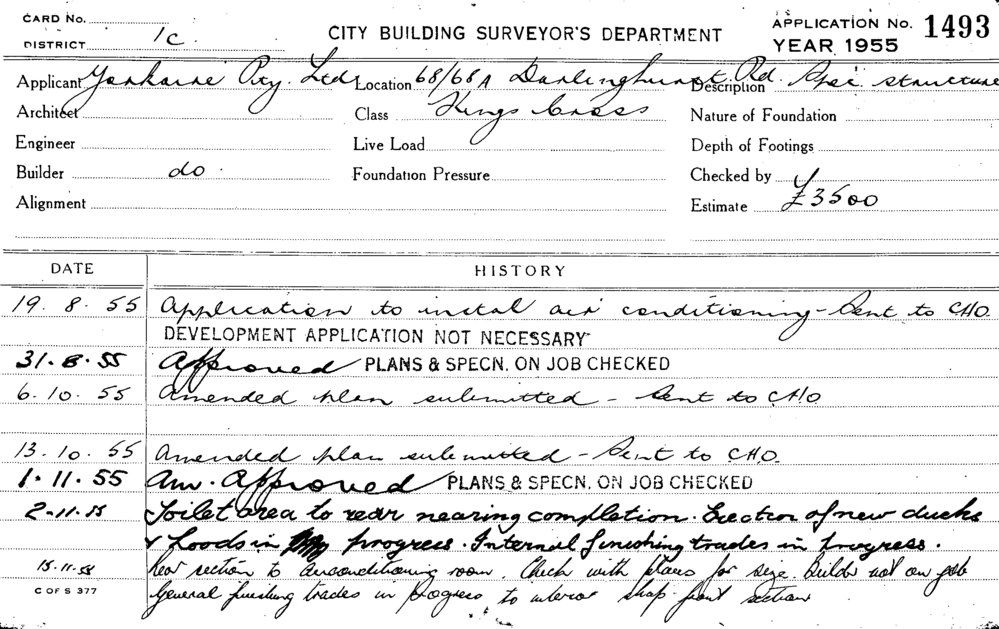 CARD No.
DISTRICT 1c
CITY BUILDING SURVEYOR'S DEPARTMENT
APPLICATION No. 1493
YEAR 1955
Applicant Pty. Ltd. Location 68/68A Darlinghurst Rd. Description Spec. structure
Architect Class Kings Cross Nature of Foundation
Engineer Live Load Depth of Footings
Builder do. Foundation Pressure Checked by
Alignment Estimate £3500
DATE HISTORY
19. 8. 55 Application to instal air conditioning - Sent to CHO.
DEVELOPMENT APPLICATION NOT NECESSARY
31. 8. 55 Approved PLANS & SPECN. ON JOB CHECKED
6. 10. 55 Amended plan submitted - Sent to CHO
13. 10. 55 Amended plan submitted - Sent to CHO.
1. 11. 55 Am. Approved PLANS & SPECN. ON JOB CHECKED
2-11.55 Toilet area to rear nearing completion. Erection of new ducks
& hoods in progress. Internal finishing trades in progress.
15.11.55 Rear section to airconditioning room. Check with plans for size. Builder not on job
C OF S 377 General finishing trades in progress to interior shop front section